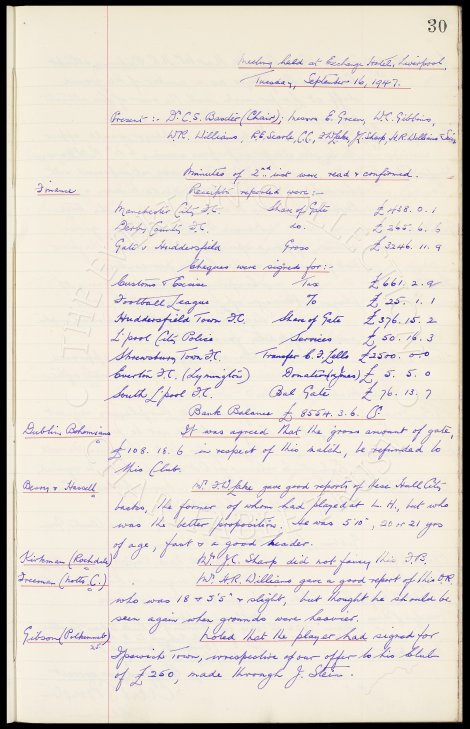 30
Meeting held at Exchange Hotel, Liverpool,
Tuesday, September 16, 1947.
Present :- Dr. C.S. Baxter (Chair); Messrs E. Green, W.C. Gibbins,
W.R. Williams, R.E. Searle, C.C., F.W. Lake, J.C. Sharp, H.R. Williams &
Minutes of 2nd inst were read & confirmed.
Finance
Receipts reported were:-
Manchester City F.C. Share of Gate £ 438. 0. 1
Derby County F.C. do. £ 265. 6. 6
Gate v Huddersfield Gross £ 3246. 11. 9
Cheques were signed for:-
Customs & Excise Tax £ 661. 2. 9
Football League To £ 25. 1. 1
Huddersfield Town F.C. Share of Gate £ 376. 15. 2
L'pool City Police Services £ 50. 16. 3
Shrewsbury Town F.C. Transfer C.F. Lello £ 2500. 0. 0
Everton F.C. (Lymington) Donation £ 5. 5. 0
South L'pool F.C. Bal Gate £ 76. 13. 7
Bank Balance £ 8554. 3. 6.
Dublin Bohemians It was agreed that the gross amount of gate,
£ 108. 18. 6 in respect of this match, be refunded to
this Club.
Berry & Hassell Mr. F.W. Lake gave good reports of these Hull City
backs, the former of whom had played at L.H., but who
was the better proposition. He was 5'10", 20 or 21 yrs
of age, fast & a good header.
Kirkman (Rochdale) Mr. J.C. Sharp did not fancy this F.B.
Freeman (Notts C.) Mr. H.R. Williams gave a good report of this O.R.
who was 18 & 5'5" & slight, but thought he should be
seen again when grounds were heavier.
Gibson Noted that the player had signed for
Ipswich Town, irrespective of our offer to his Club
of £250, made through J. Stein.